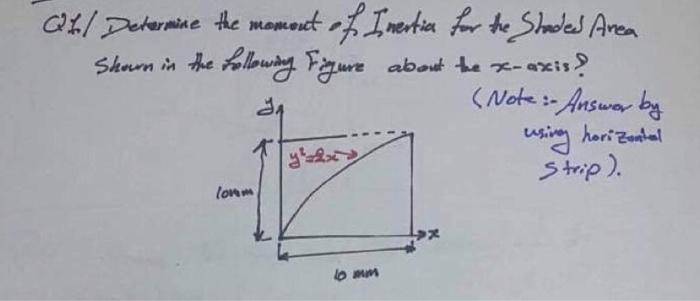 Q1/ Determine the moment of Inertia for the Shaded Area
Shown in the following Figure about the x-axis?
(Note:- Answer by
using horizontal
Strip).
y
y²=2x
10mm
x
10 mm